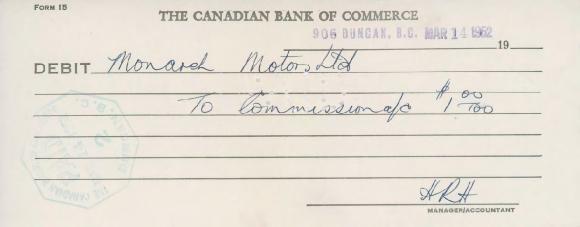 FORM 15
THE CANADIAN BANK OF COMMERCE
906 DUNCAN, B.C. MAR 14 1952
19
DEBIT Monarch Motors Ltd
To Commission a/c $1 00/100
THE CANADIAN
HRH
MANAGER/ACCOUNTANT